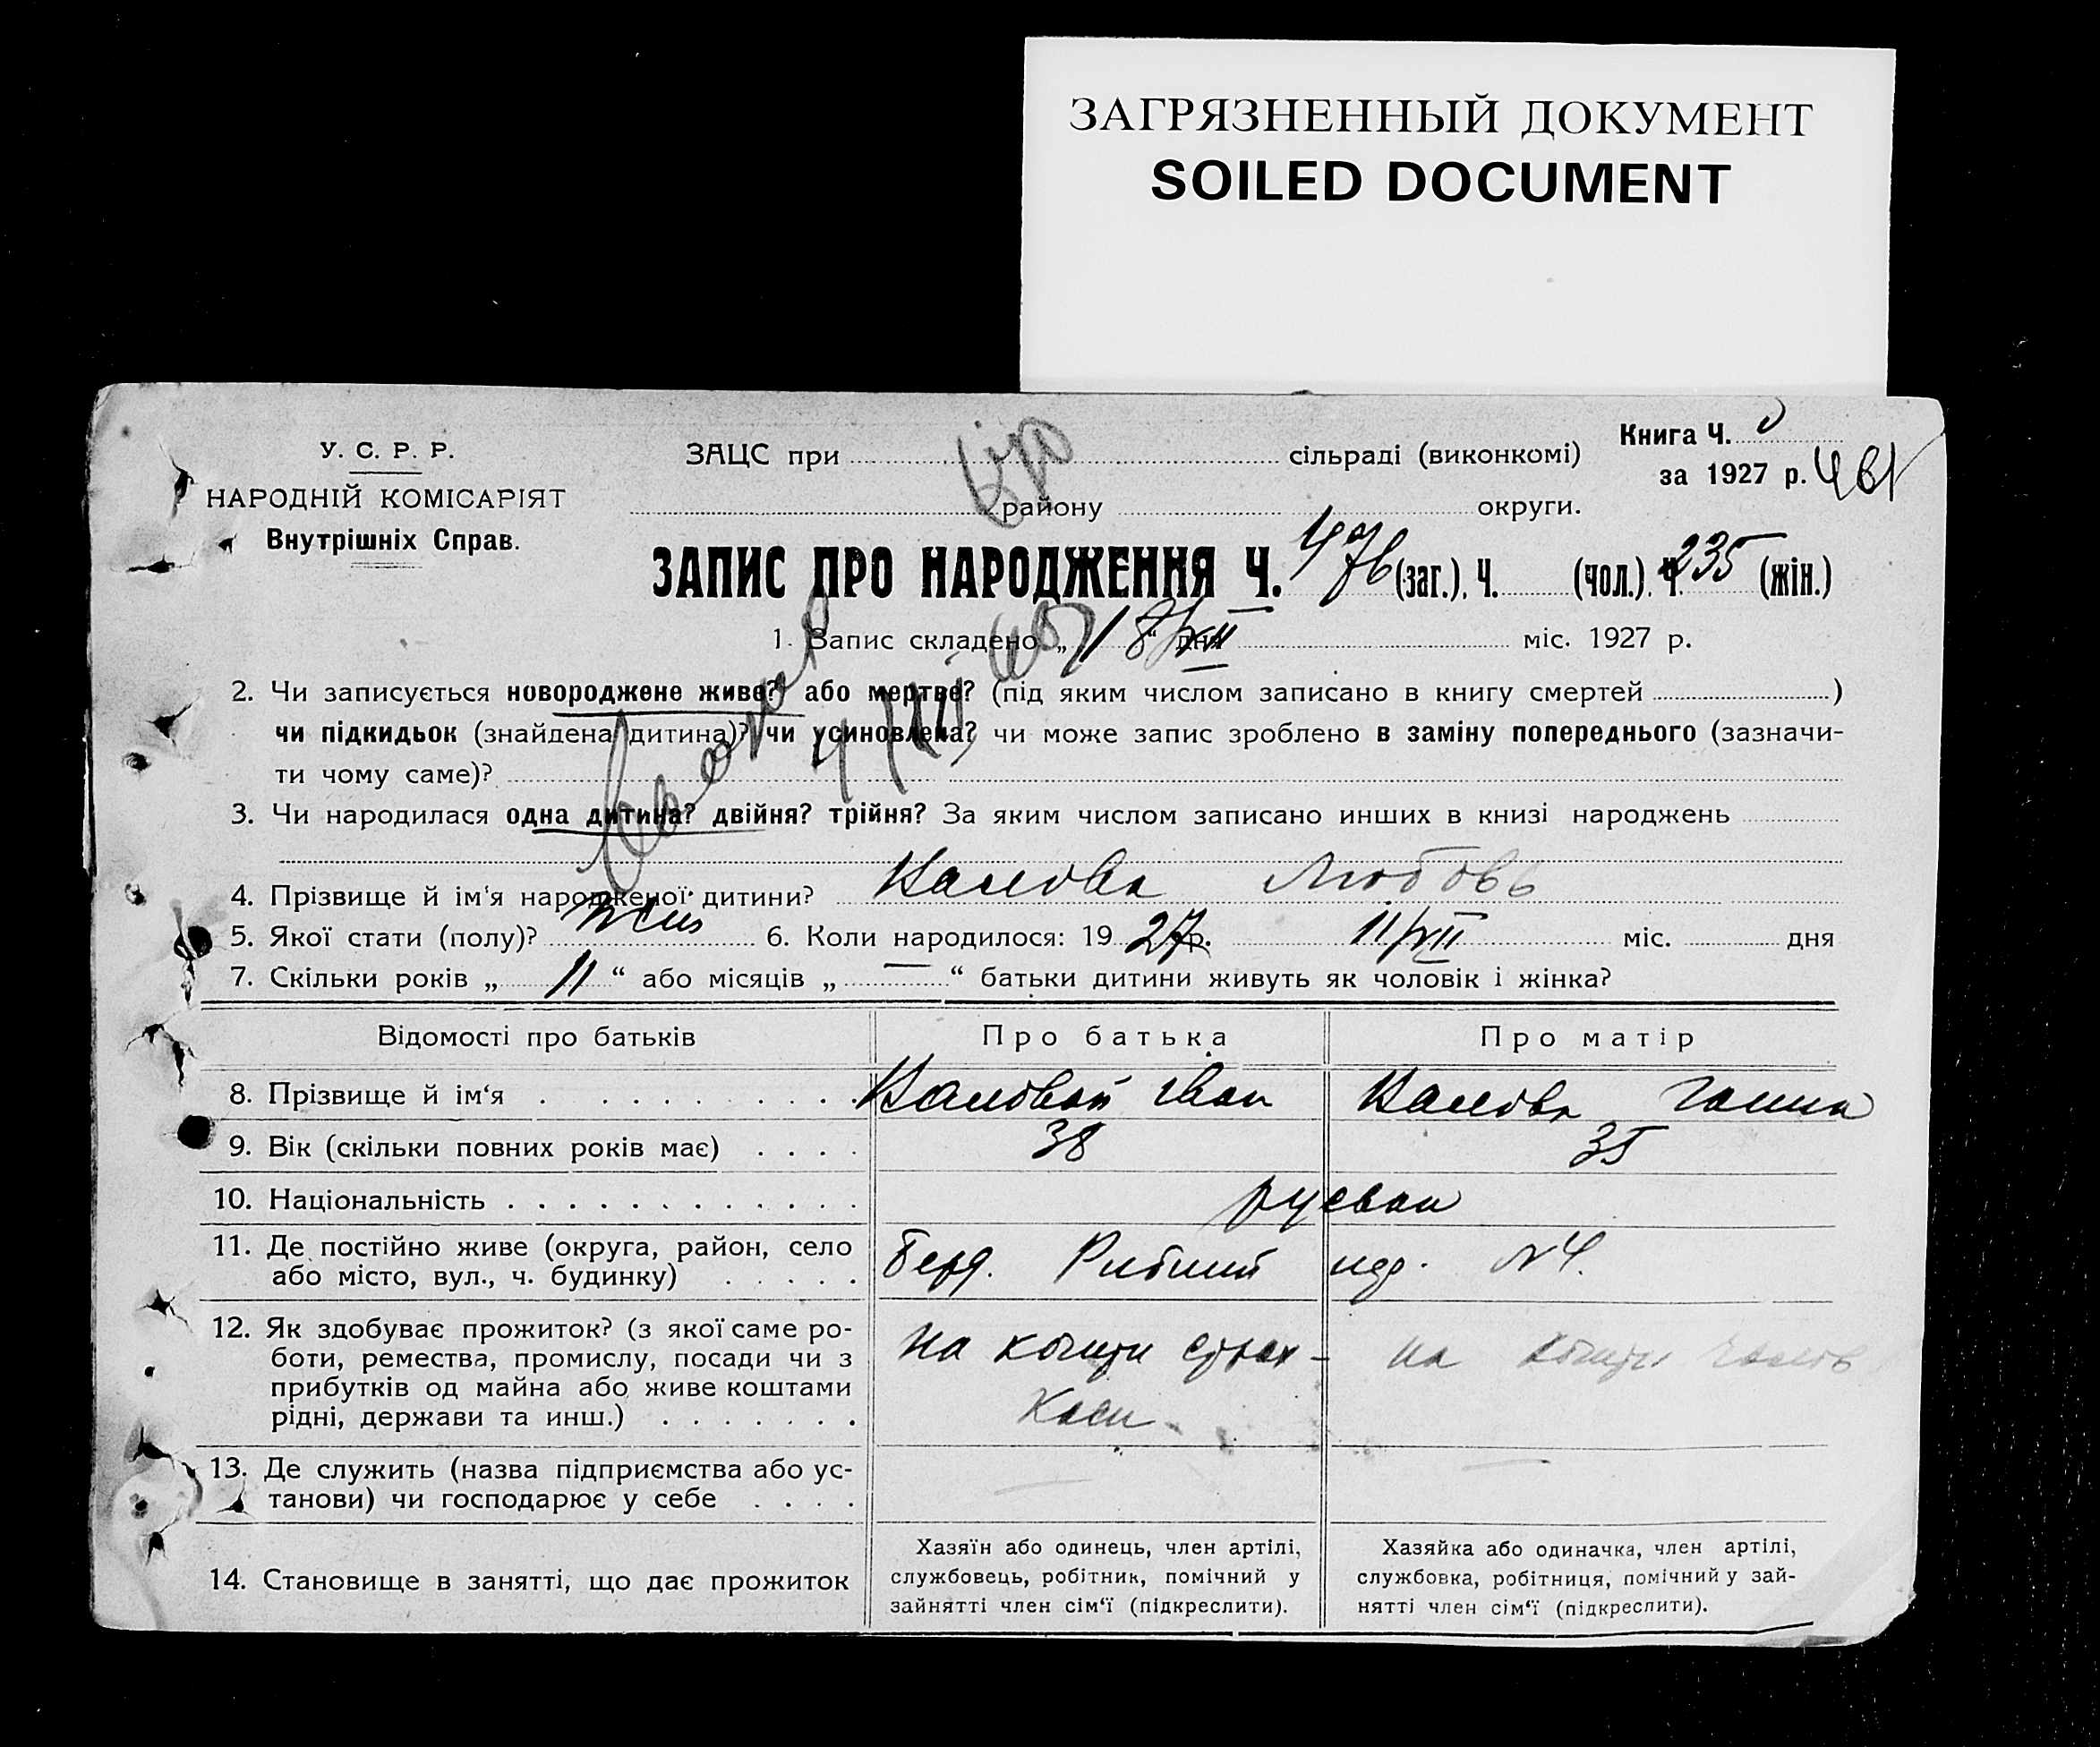 ЗАГРЯЗНЕННЫЙ ДОКУМЕНТ
SOILED DOCUMENT
Книга Ч.
У. С. Р. Р.
ЗАЦС при сільраді (виконкомі)
за 1927 р.
НАРОДНІЙ КОМІСАРІЯТ
району округи.
Внутрішніх Справ.
ЗАПИС ПРО НАРОДЖЕННЯ Ч. 476 (заг.), Ч. (чол.). Ч. 235 (жін.)
1. Запис складено „ 18/XII “ дня міс. 1927 р.
2. Чи записується новороджене живе? або мертве? (під яким числом записано в книгу смертей )
чи підкидьок (знайдена дитина)? чи усиновлена? чи може запис зроблено в заміну попереднього (зазначи-
ти чому саме)?
3. Чи народилася одна дитина? двійня? трійня? За яким числом записано инших в книзі народжень
4. Прізвище й ім‘я народженої дитини? Любовь
5. Якої стати (полу)? жин 6. Коли народилося: 19 27 р. 11/XII міс. дня
7. Скільки років „ 11 “ або місяців „ — “ батьки дитини живуть як чоловік і жінка?
Відомості про батьків
Про батька
Про матір
8. Прізвище й ім‘я Іван
9. Вік (скільки повних років має) 38 35
10. Національність
11. Де постійно живе (округа, район, село
або місто, вул., ч. будинку) Берд. №4.
12. Як здобуває прожиток? (з якої саме ро-
боти, ремества, промислу, посади чи з
прибутків од майна або живе коштами
рідні, держави та инш.)
на кошти страх-
каси
на кошти
13. Де служить (назва підприємства або ус-
танови) чи господарює у себе
14. Становище в занятті, що дає прожиток
Хазяїн або одинець, член артілі,
службовець, робітник, помічний у
зайнятті член сім‘ї (підкреслити).
Хазяйка або одиначка, член артілі,
службовка, робітниця, помічний у зай-
нятті член сім‘ї (підкреслити).